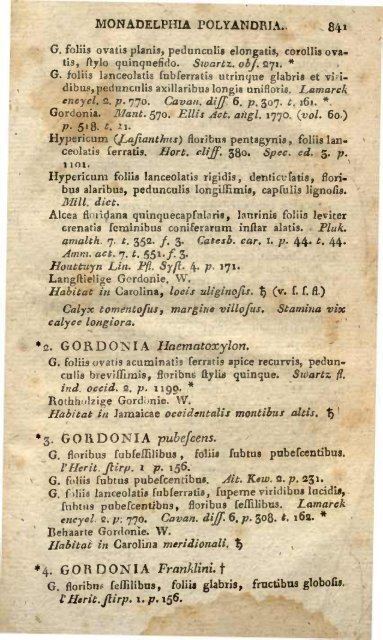 MONADELPHIA POLYANDRIA. 841
G. foliis ovatis planis, pedunculis elongatis, corollis ova-
tis, ſtylo quinquefido. Swartz. obſ. 271. *
G. foliis lanceolatis ſubſerratis utrinque glabris et viri-
dibus, pedunculis axillaribus longis unifloris. Lamarck
encycl. 2. p. 770. Cavan. diſſ. 6. p. 307. t. 161. *
Gordonia. Mant. 570. Ellis Act. angl. 1770. (vol. 60.)
p. 518. t. 11.
Hypericum (Laſianthus) floribus pentagynis, foliis lan-
ceolatis ſerratis. Hort. cliff. 380. Spec. ed. 3. p.
1101.
Hypericum foliis lanceolatis rigidis, denticulatis, flori-
bus alaribus, pedunculis longiſſimis, capſulis lignoſis.
Mill. dict.
Alcea floridana quinquecapſularis, laurinis foliis leviter
crenatis ſeminibus coniferarum inſtar alatis. Pluk.
amalth. 7. t. 352. f. 3. Catesb. car. 1. p. 44. t. 44.
Amm. act. 7. t. 551. f. 3.
Houttuyn Lin. Pfl. Syſt. 4. p. 171.
Langſtielige Gordonie. W.
Habitat in Carolina, locis uliginoſis. ♄ (v. ſ. ſ. fl.)
Calyx tomentoſus, margine villoſus. Stamina vix
calyce longiora.
*2. GORDONIA Haematoxylon.
G. foliis ovatis acuminatis ſerratis apice recurvis, pedun-
culis breviſſimis, floribus ſtylis quinque. Swartz fl.
ind. occid. 2. p. 1199. *
Rothholzige Gordonie. W.
Habitat in Jamaicae occidentalis montibus altis. ♄
*3. GORDONIA pubeſcens.
G. floribus ſubſeſſilibus, foliis ſubtus pubeſcentibus.
l'Herit. ſtirp. 1 p. 156.
G. foliis ſubtus pubeſcentibus. Ait. Kew. 2. p. 231.
G. foliis lanceolatis ſubſerratis, ſuperne viridibus lucidis,
ſubtus pubeſcentibus, floribus ſeſſilibus. Lamarck
encycl. 2. p. 770. Cavan. diſſ. 6. p. 308. t. 162. *
Behaarte Gordonie. W.
Habitat in Carolina meridionali. ♄
*4. GORDONIA Franklini. †
G. floribus ſeſſilibus, foliis glabris, fructibus globoſis.
l'Herit. ſtirp. 1. p. 156.